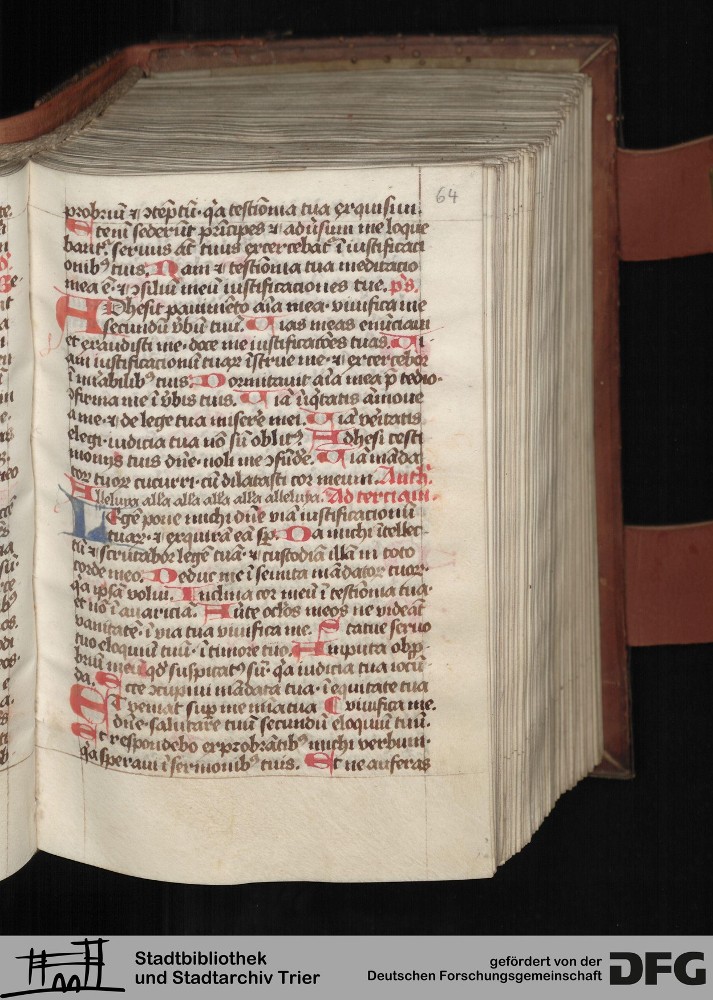 64
probriũ ⁊ ↄtẽptũ· q̃a testiõnia tua ex̾quisiui.
Etenĩ sederũt prĩcipes ⁊ adũsum me loque
bant᷑· seruus aũt tuus exercebat᷑ ĩ iustificati
onibꝰ tuis. Nam ⁊ testiõnia tua meditatio
mea ẽ· ⁊ ↄsiliũ meũ iustificationes tue. p̃s.
ADhesit pauimẽto aĩa mea· viuifica me
secundũ v̾bũ tuũ. Uias meas enũciaui
et exaudisti me· doce me iustificatões tuas. Ui
am iustificationũ tuaꝝ ĩstrue me· ⁊ exercebor
ĩ mirabilibꝰ tuis. Dormitauit aĩa mea p̃ tedio·
ↄfirma me ĩ v̾bis tuis. Uiã iniq̃tatis amoue
a me· ⁊ de lege tua misere̾ mei. Uiã veritatis
elegi· iudicia tua nõ sũ oblitꝰ Adhesi testi
monijs tuis dñe· noli me ↄfũde̾. Uiã mãda
toꝝ tuoꝝ cucurri· cũ dilatasti cor meum. Anth̾.
Alleluya alla alla alla alla alleluya. Ad terciam.
LEgẽ pone michi dñe viã iustificationũ
tuaꝝ· ⁊ exquirã eã sp̃. Da michi ĩtellec-
tũ ⁊ scrutabor legẽ tuã· ⁊ custodiã illã in toto
corde meo. Deduc me ĩ semita mãdatoꝝ tuoꝝ·
q̃a ip̃sã volui. Inclina cor meũ ĩ testiõnia tua·
et nõ ĩ auariciã. Au̾te oc̃los meos ne videãt
vanitatẽ· ĩ via tua viuifica me. Statue seruo
tuo eloquiũ tuũ· ĩ timore tuo. Amputa obp̃-
briũ meũ qd̾ suspicatꝰ sũ· q̃a iudicia tua iocũ-
da. Ecce ↄcupiui mãdata tua· ĩ equitate tua
viuifica me.
ET veniat sup̾ me mĩa tua
dñe· salutare tuũ secundũ eloquiũ tuũ.
Et respondebo exprobrãtibꝰ michi verbum·
q̃a speraui ĩ sermonibꝰ tuis. Et ne auferas
Stadtbibliothek
und Stadtarchiv Trier
gefördert von der
Deutschen Forschungsgemeinschaft
DFG